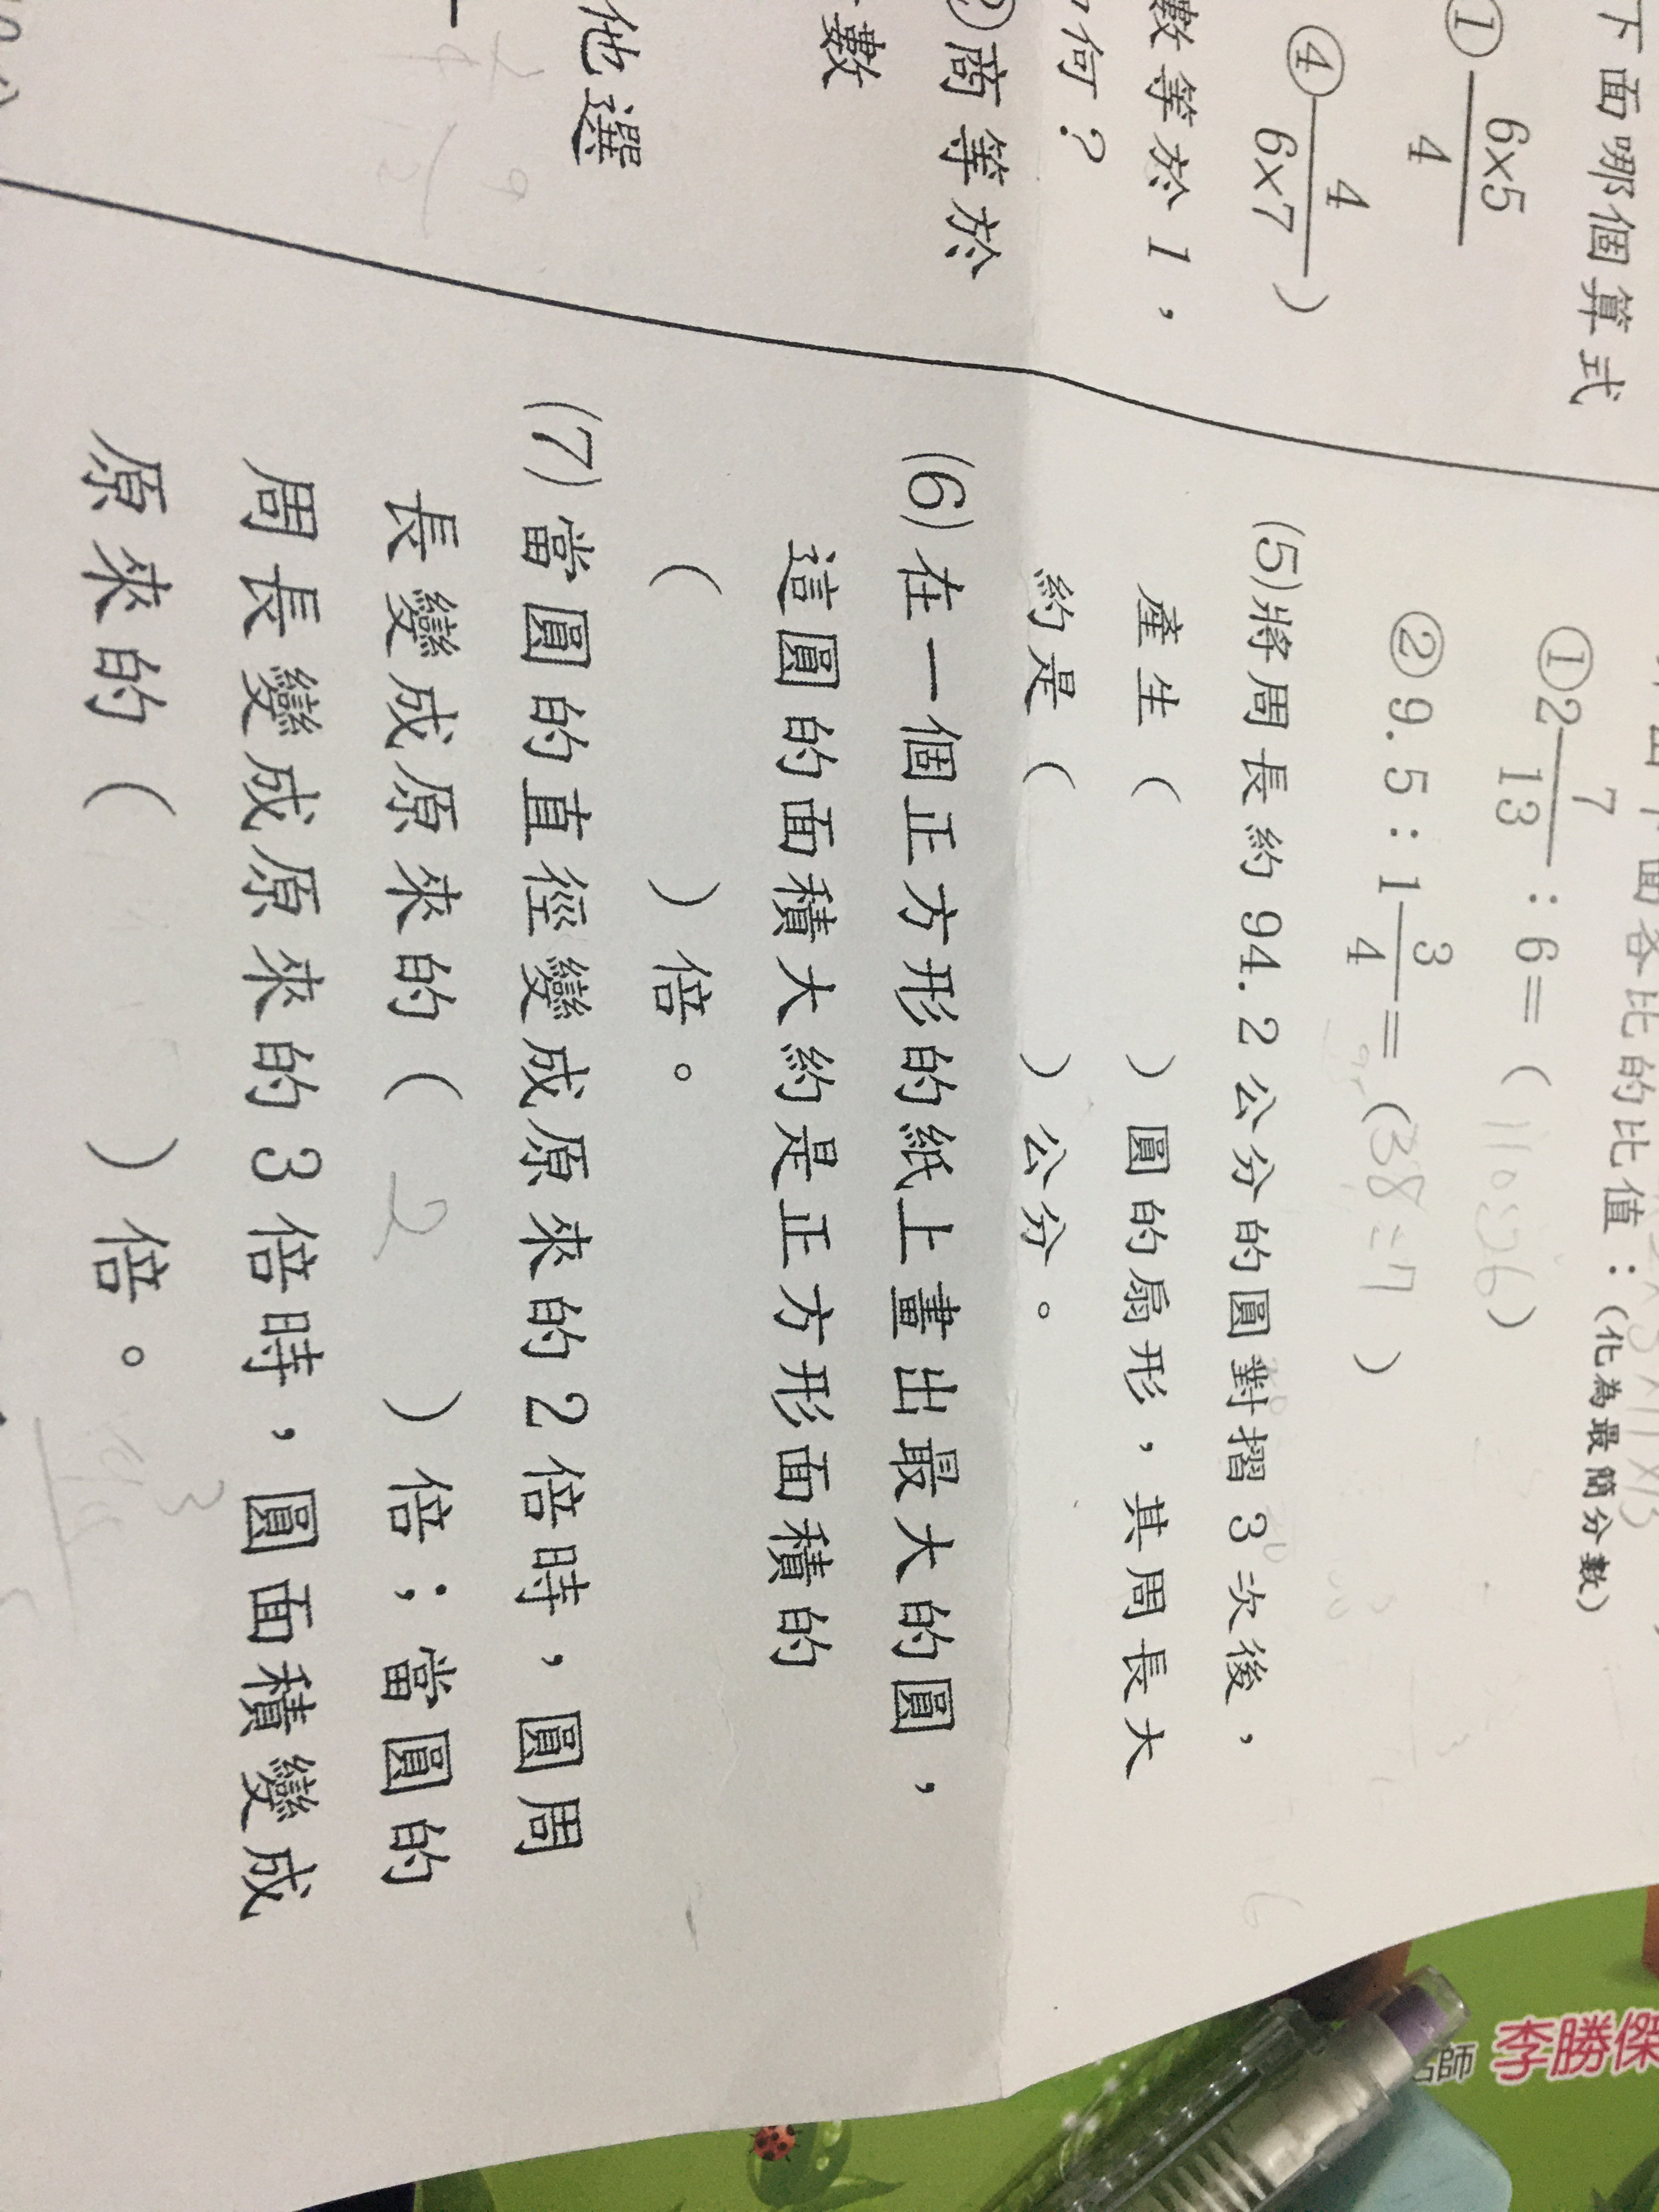 下面哪個算式
① 6×5/4
④ 4/6×7 )
數等於1，
何？
②商等於
數
他選
下面各比的比值：(化為最簡分數)
①2 7/13：6=( )
②9.5：1 3/4=(38:7 )
(5)將周長約94.2公分的圓對摺3次後，
產生( )圓的扇形，其周長大
約是( )公分。
(6)在一個正方形的紙上畫出最大的圓，
這圓的面積大約是正方形面積的
( )倍。
(7)當圓的直徑變成原來的2倍時，圓周
長變成原來的( 2 )倍；當圓的
周長變成原來的3倍時，圓面積變成
原來的( )倍。
名師 李勝傑